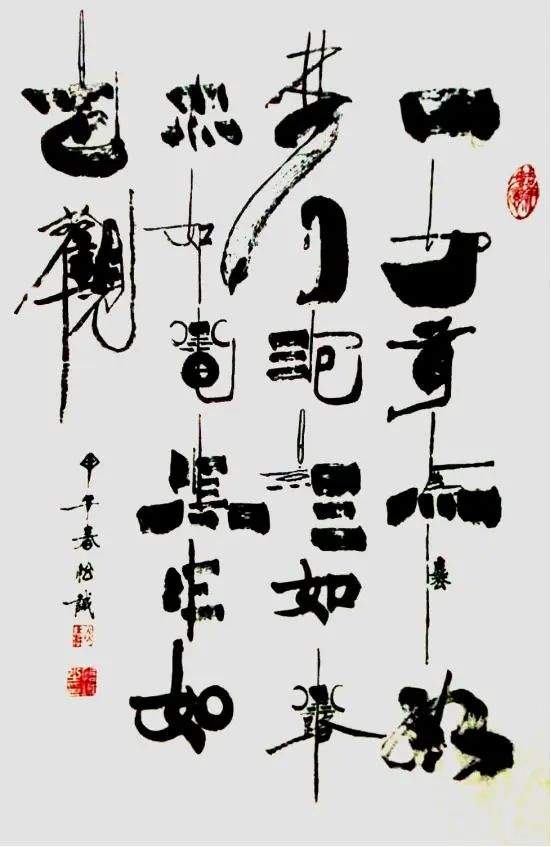 一切有为法
梦幻泡影如露
亦如電應作如
是觀
甲午春